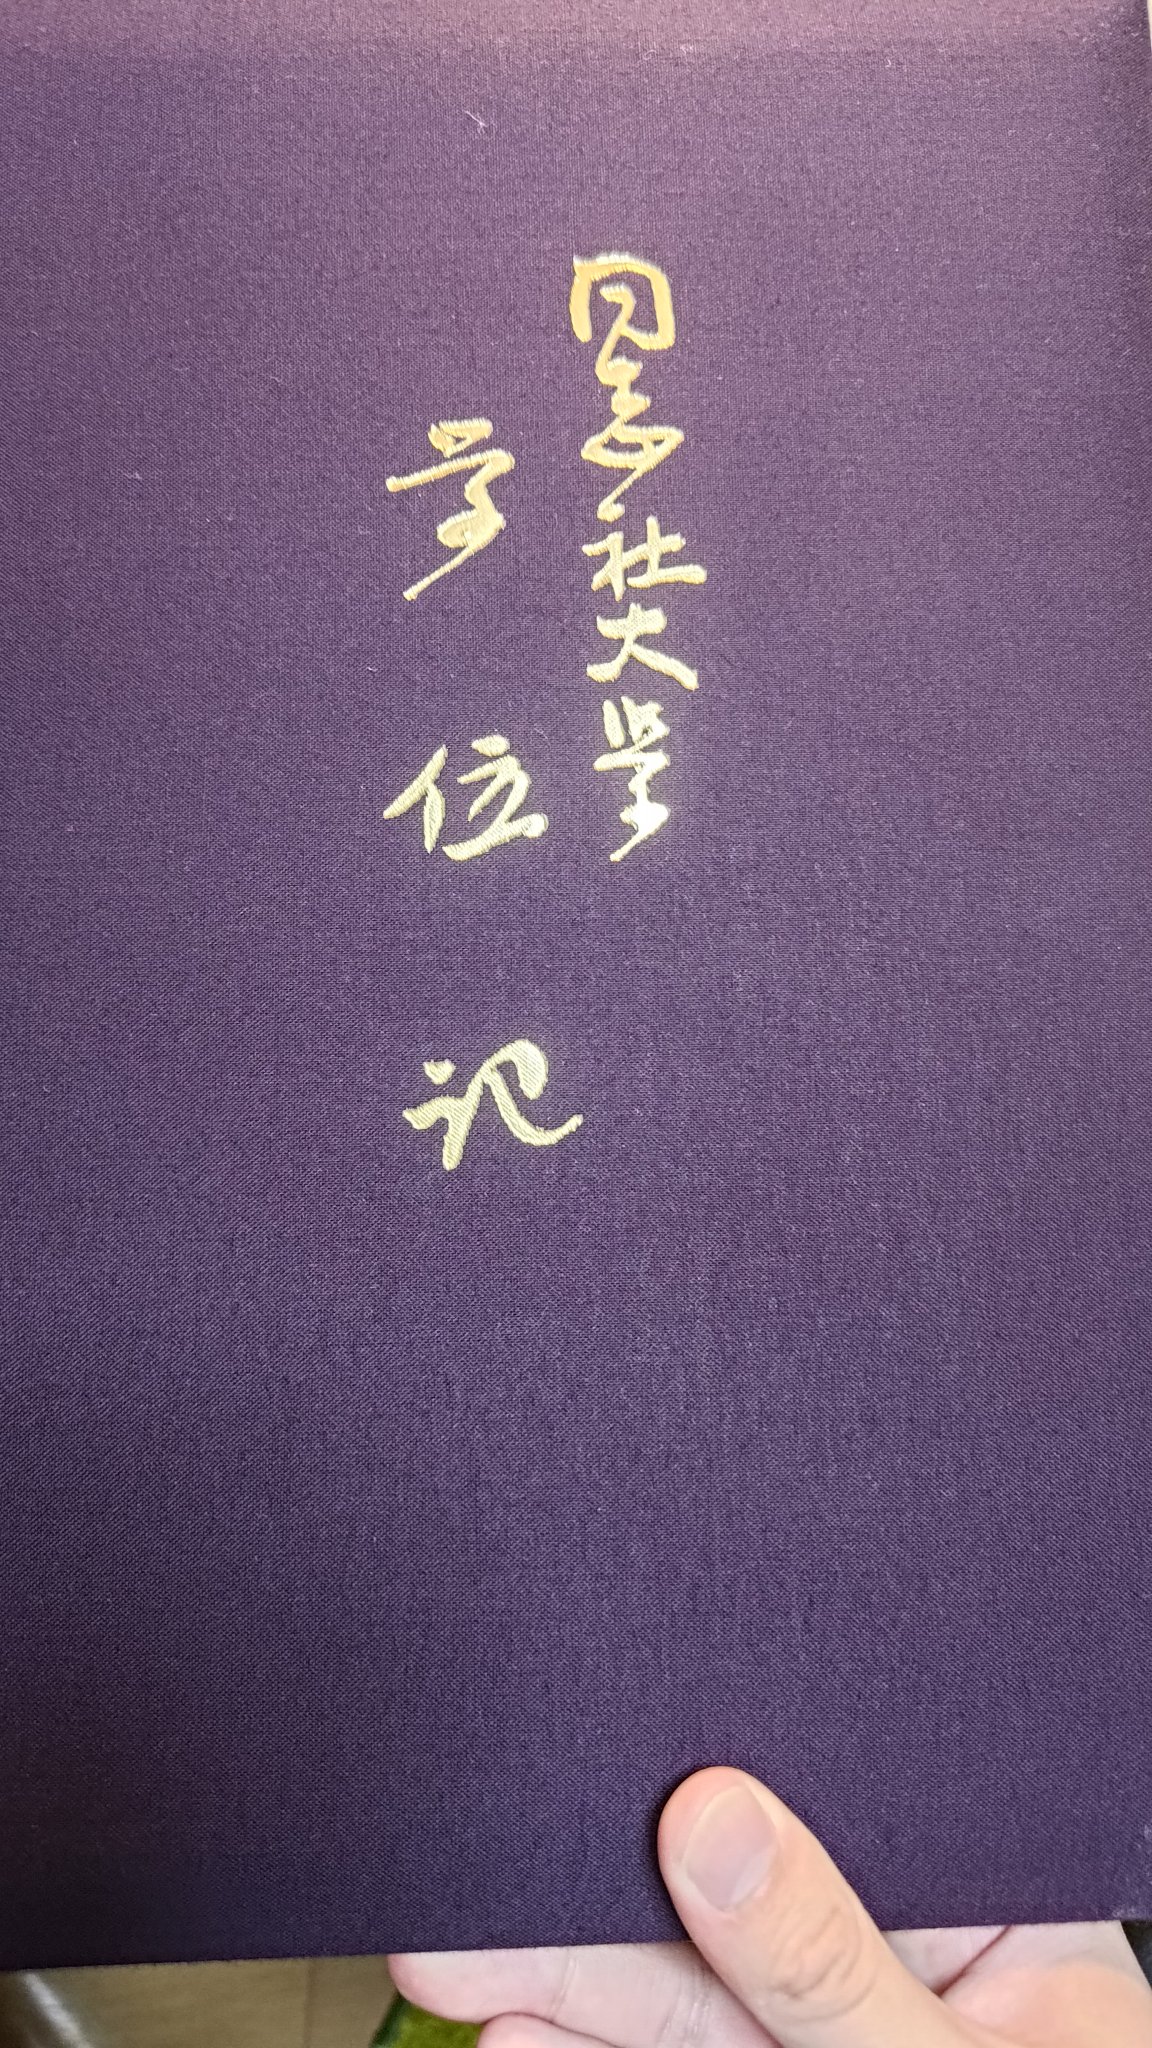 同志社大学
学位記